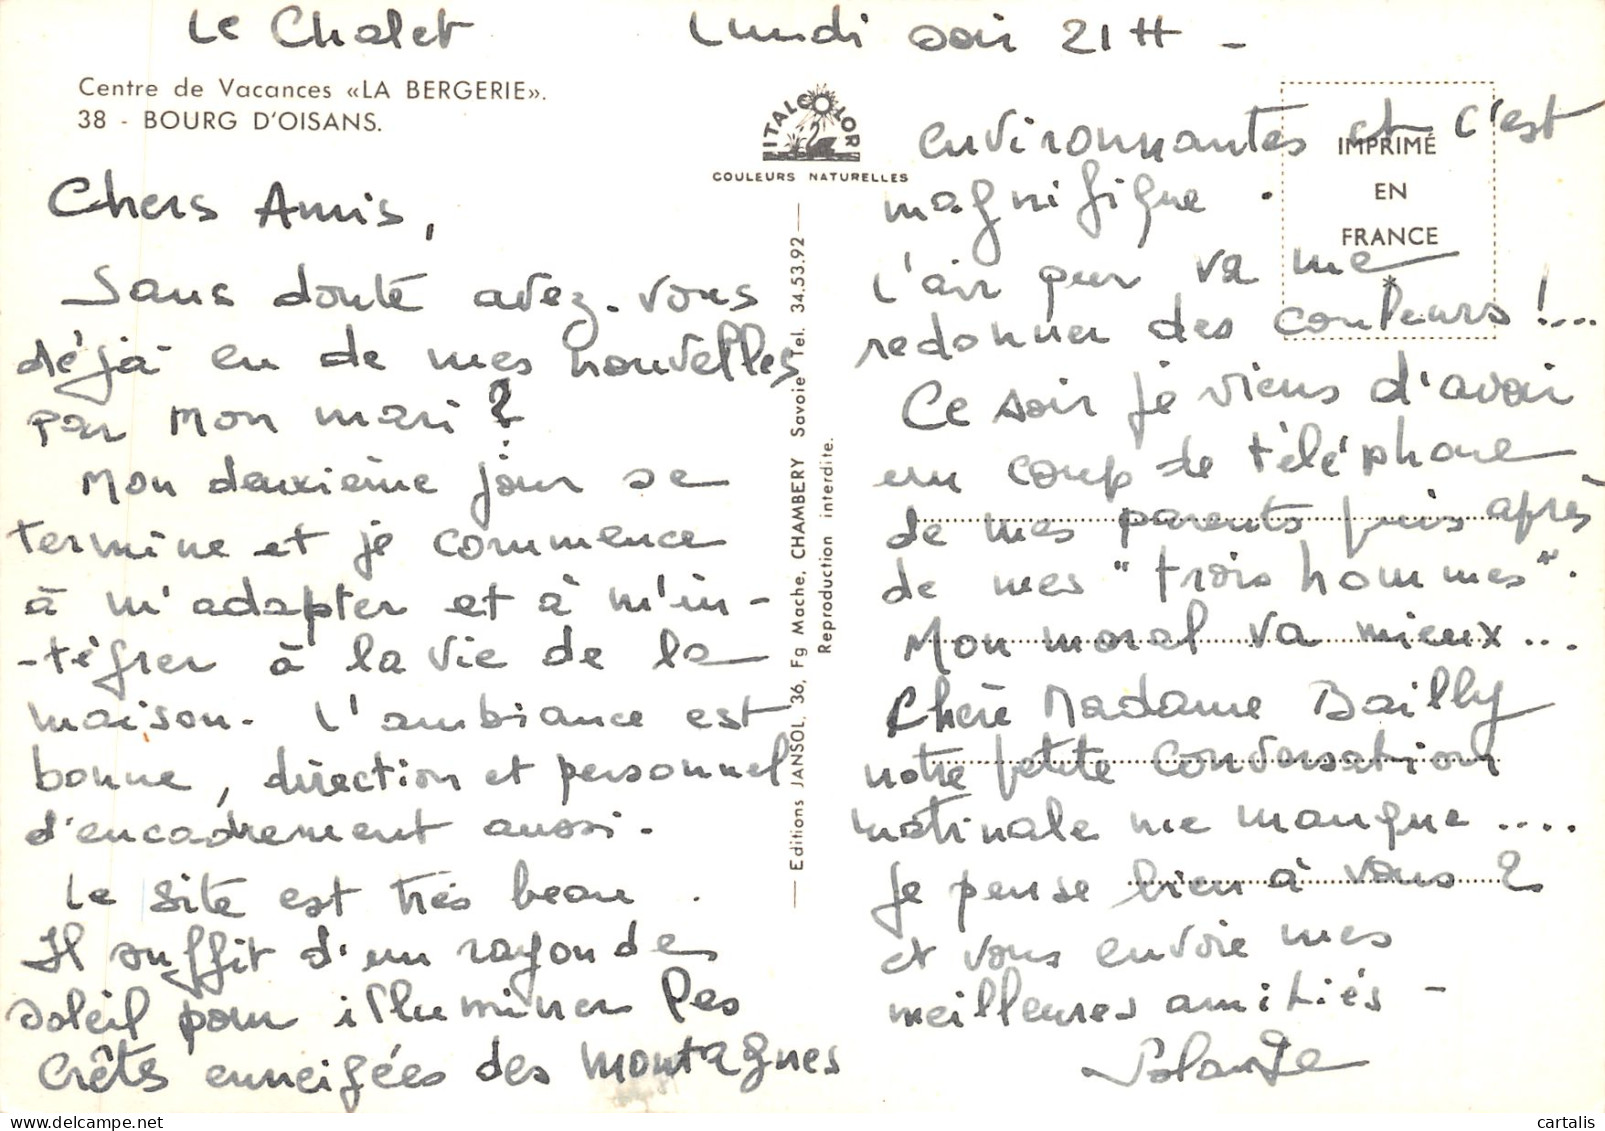 Le Chalet
Lundi soir 21 H -
Centre de Vacances «LA BERGERIE».
38 - BOURG D'OISANS.
Chers Amis,
Sans doute avez-vous
déjà eu de mes nouvelles
par mon mari ?
Mon deuxième jour se
termine et je commence
à m'adapter et à m'in-
-tégrer à la vie de la
maison. L'ambiance est
bonne, direction et personnel
d'encadrement aussi.
Le site est très beau.
Il suffit d'un rayon de
soleil pour illuminer les
crêtes enneigées des montagnes
ITALCOLOR
COULEURS NATURELLES
Editions JANSOL, 36, Fg Mache, CHAMBERY Savoie Tel. 34.53.92
Reproduction interdite.
IMPRIMÉ
EN
FRANCE
*
environnantes et c'est
magnifique.
L'air pur va me
redonner des couleurs !...
Ce soir je viens d'avoir
un coup de téléphone
de mes parents puis après
de mes "trois hommes".
Mon moral va mieux...
Chère Madame Bailly
notre petite conversation
matinale me manque....
Je pense bien à vous 2
et vous envoie mes
meilleures amitiés -
Yolande
cartalis